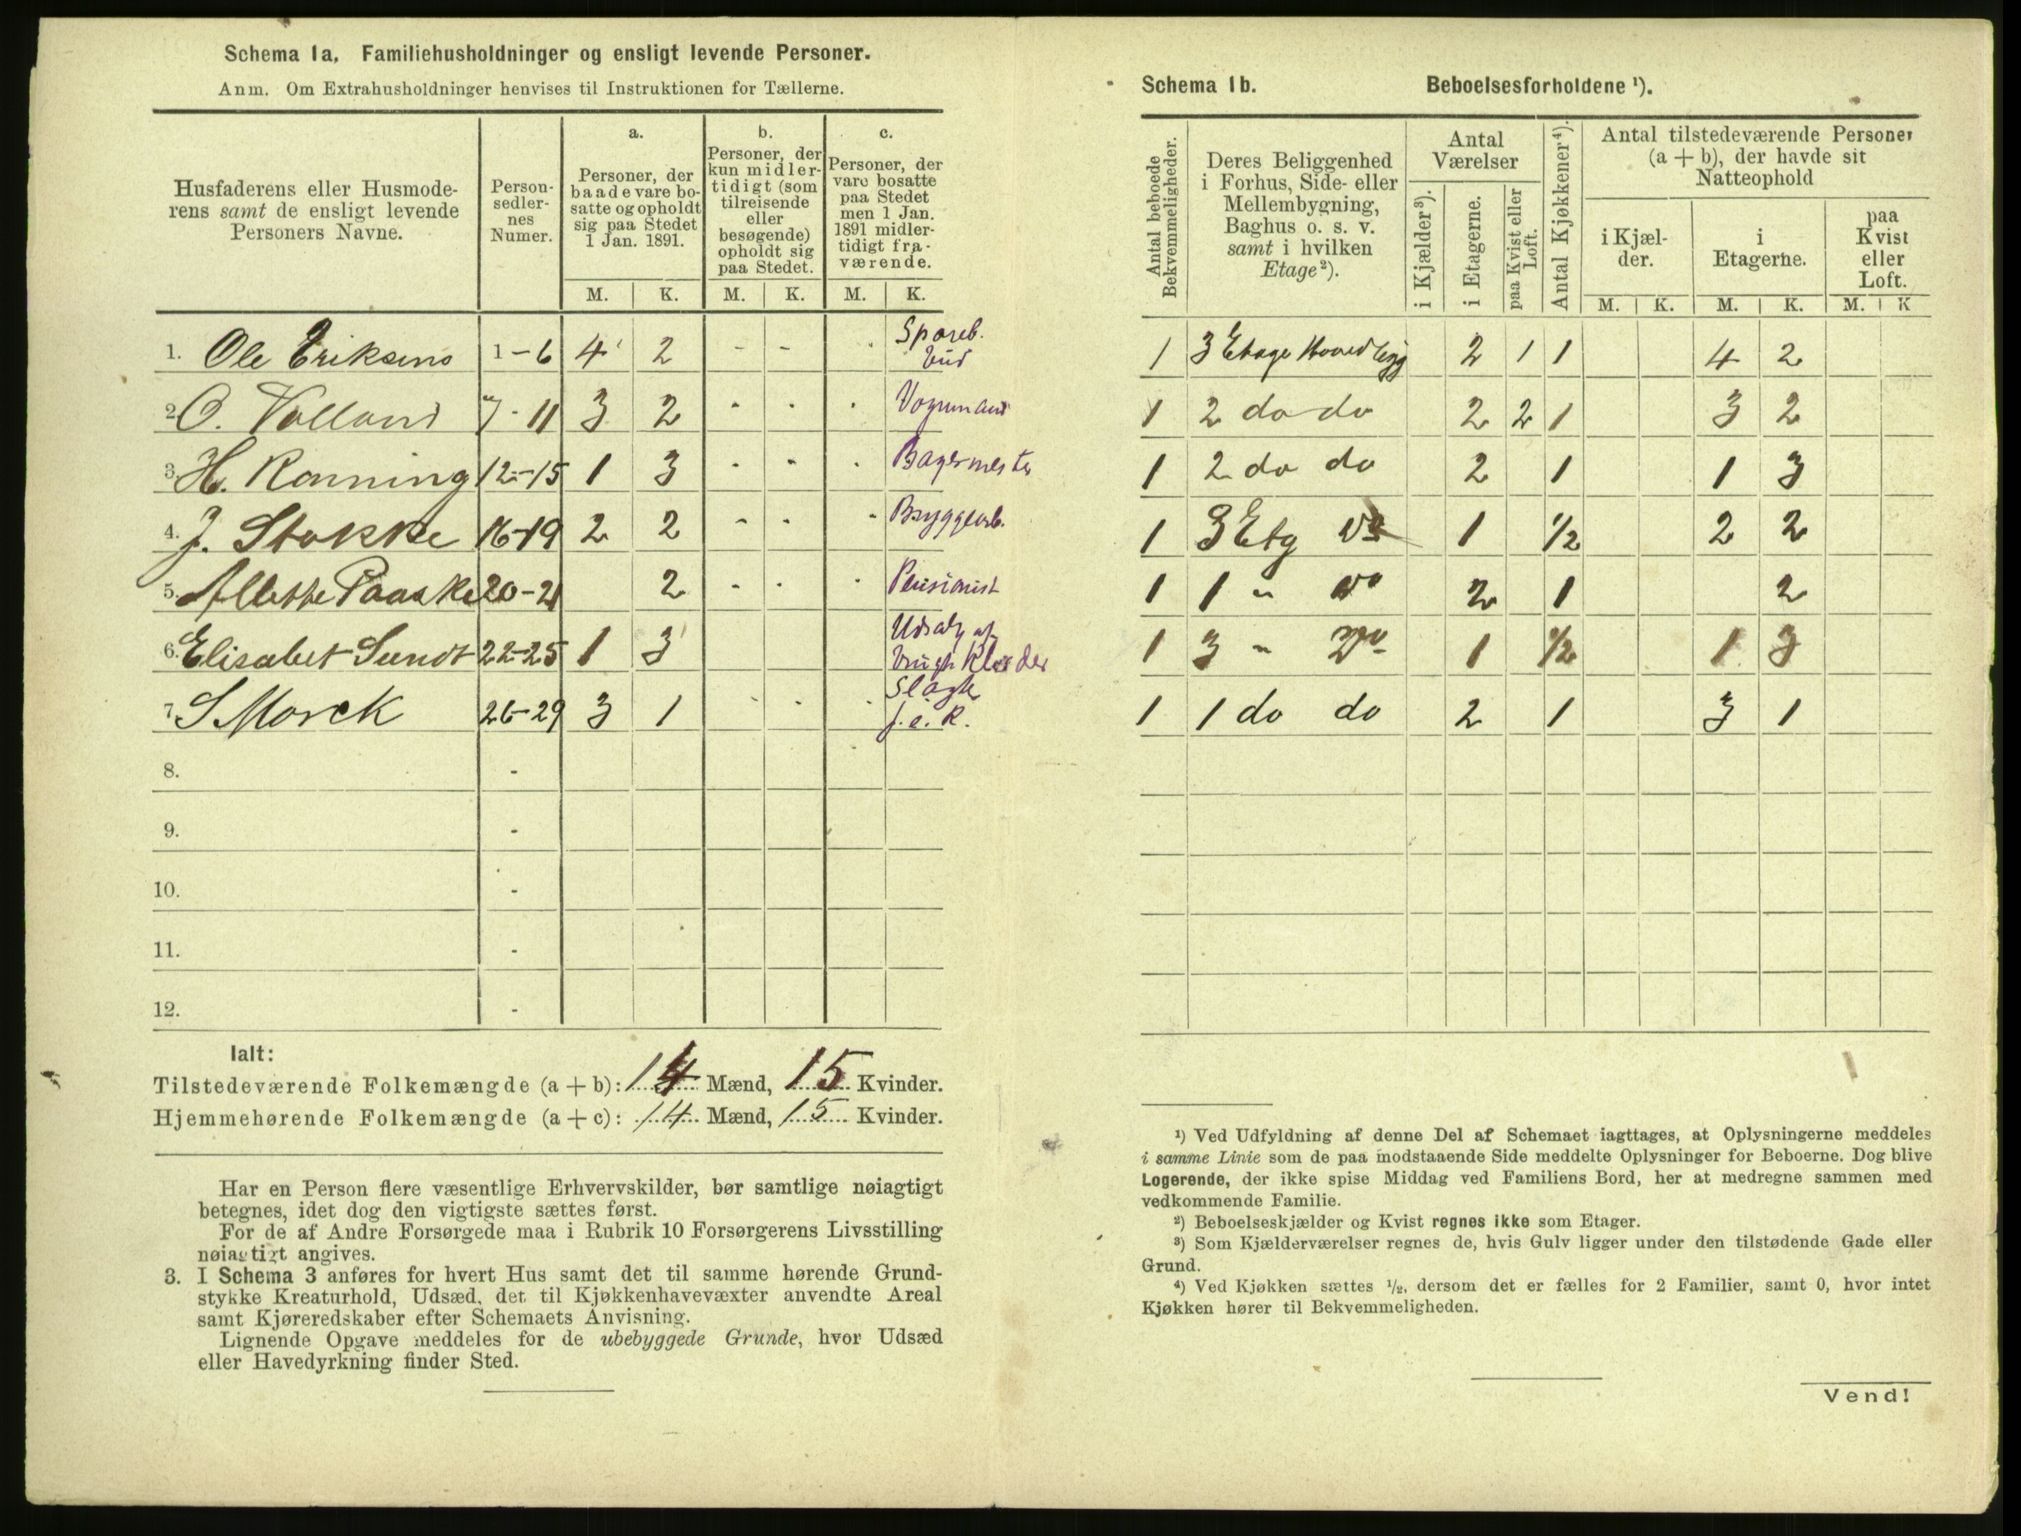 Schema 1a. Familiehusholdninger og ensligt levende Personer.
Anm. Om Extrahusholdninger henvises til Instruktionen for Tællerne.
Husfaderens eller Husmode-
rens samt de ensligt levende
Personers Navne.
Person-
sedler-
nes
Numer.
a.
Personer, der
baade vare bo-
satte og opholdt
sig paa Stedet
1 Jan. 1891.
b.
Personer, der
kun midler-
tidigt (som
tilreisende
eller
besøgende)
opholdt sig
paa Stedet.
c.
Personer, der
vare bosatte
paa Stedet
men 1 Jan.
1891 midler-
tidigt fra-
værende.
M. K. M. K. M. K.
1. Ole Eriksens 1-6 4 2 - - . Spareb.
bud
2. O. Volland 7-11 3 2 - - . Vognmand
3. H. Ronning 12-15 1 3 - - . Bagermester
4. J. Stokke 16-19 2 2 - - - Bryggearb.
5. Allette Paaske 20-21 2 - - - Pensionist
6. Elisabet Sundt 22-25 1 3 Udsalg af
brugte Klæder
7. S Morck 26-29 3 1 - - - Slagter
f. e. R.
8. -
9. -
10. -
11. -
12. -
Ialt:
Tilstedeværende Folkemængde (a + b): 14 Mænd, 15 Kvinder.
Hjemmehørende Folkemængde (a + c): 14 Mænd, 15 Kvinder.
Har en Person flere væsentlige Erhvervskilder, bør samtlige nøiagtigt
betegnes, idet dog den vigtigste sættes først.
For de af Andre Forsørgede maa i Rubrik 10 Forsørgerens Livsstilling
nøiagtigt angives.
3. I Schema 3 anføres for hvert Hus samt det til samme hørende Grund-
stykke Kreaturhold, Udsæd, det til Kjøkkenhavevæxter anvendte Areal
samt Kjøreredskaber efter Schemaets Anvisning.
Lignende Opgave meddeles for de ubebyggede Grunde, hvor Udsæd
eller Havedyrkning finder Sted.
Schema 1b. Beboelsesforholdene ¹).
Antal beboede
Bekvemmeligheder.
Deres Beliggenhed
i Forhus, Side- eller
Mellembygning,
Baghus o. s. v.
samt i hvilken
Etage ²).
Antal
Værelser
i Kjælder ³).
i Etagerne.
paa Kvist eller
Loft.
Antal Kjøkkener ⁴).
Antal tilstedeværende Personer
(a + b), der havde sit
Natteophold
i Kjæl-
der.
i
Etagerne.
paa
Kvist
eller
Loft.
M. K. M. K. M. K
1 3 Etage Hovedbygg 2 1 1 4 2
1 2 do do 2 2 1 3 2
1 2 do do 2 1 1 3
1 3 Etg Do 1 1/2 2 2
1 1 " Do 2 1 2
1 3 " Do 1 1/2 1 3
1 1 do do 2 1 3 1
¹) Ved Udfyldning af denne Del af Schemaet iagttages, at Oplysningerne meddeles
i samme Linie som de paa modstaaende Side meddelte Oplysninger for Beboerne. Dog blive
Logerende, der ikke spise Middag ved Familiens Bord, her at medregne sammen med
vedkommende Familie.
²) Beboelseskjælder og Kvist regnes ikke som Etager.
³) Som Kjælderværelser regnes de, hvis Gulv ligger under den tilstødende Gade eller
Grund.
⁴) Ved Kjøkken sættes ½, dersom det er fælles for 2 Familier, samt 0, hvor intet
Kjøkken hører til Bekvemmeligheden.
Vend!